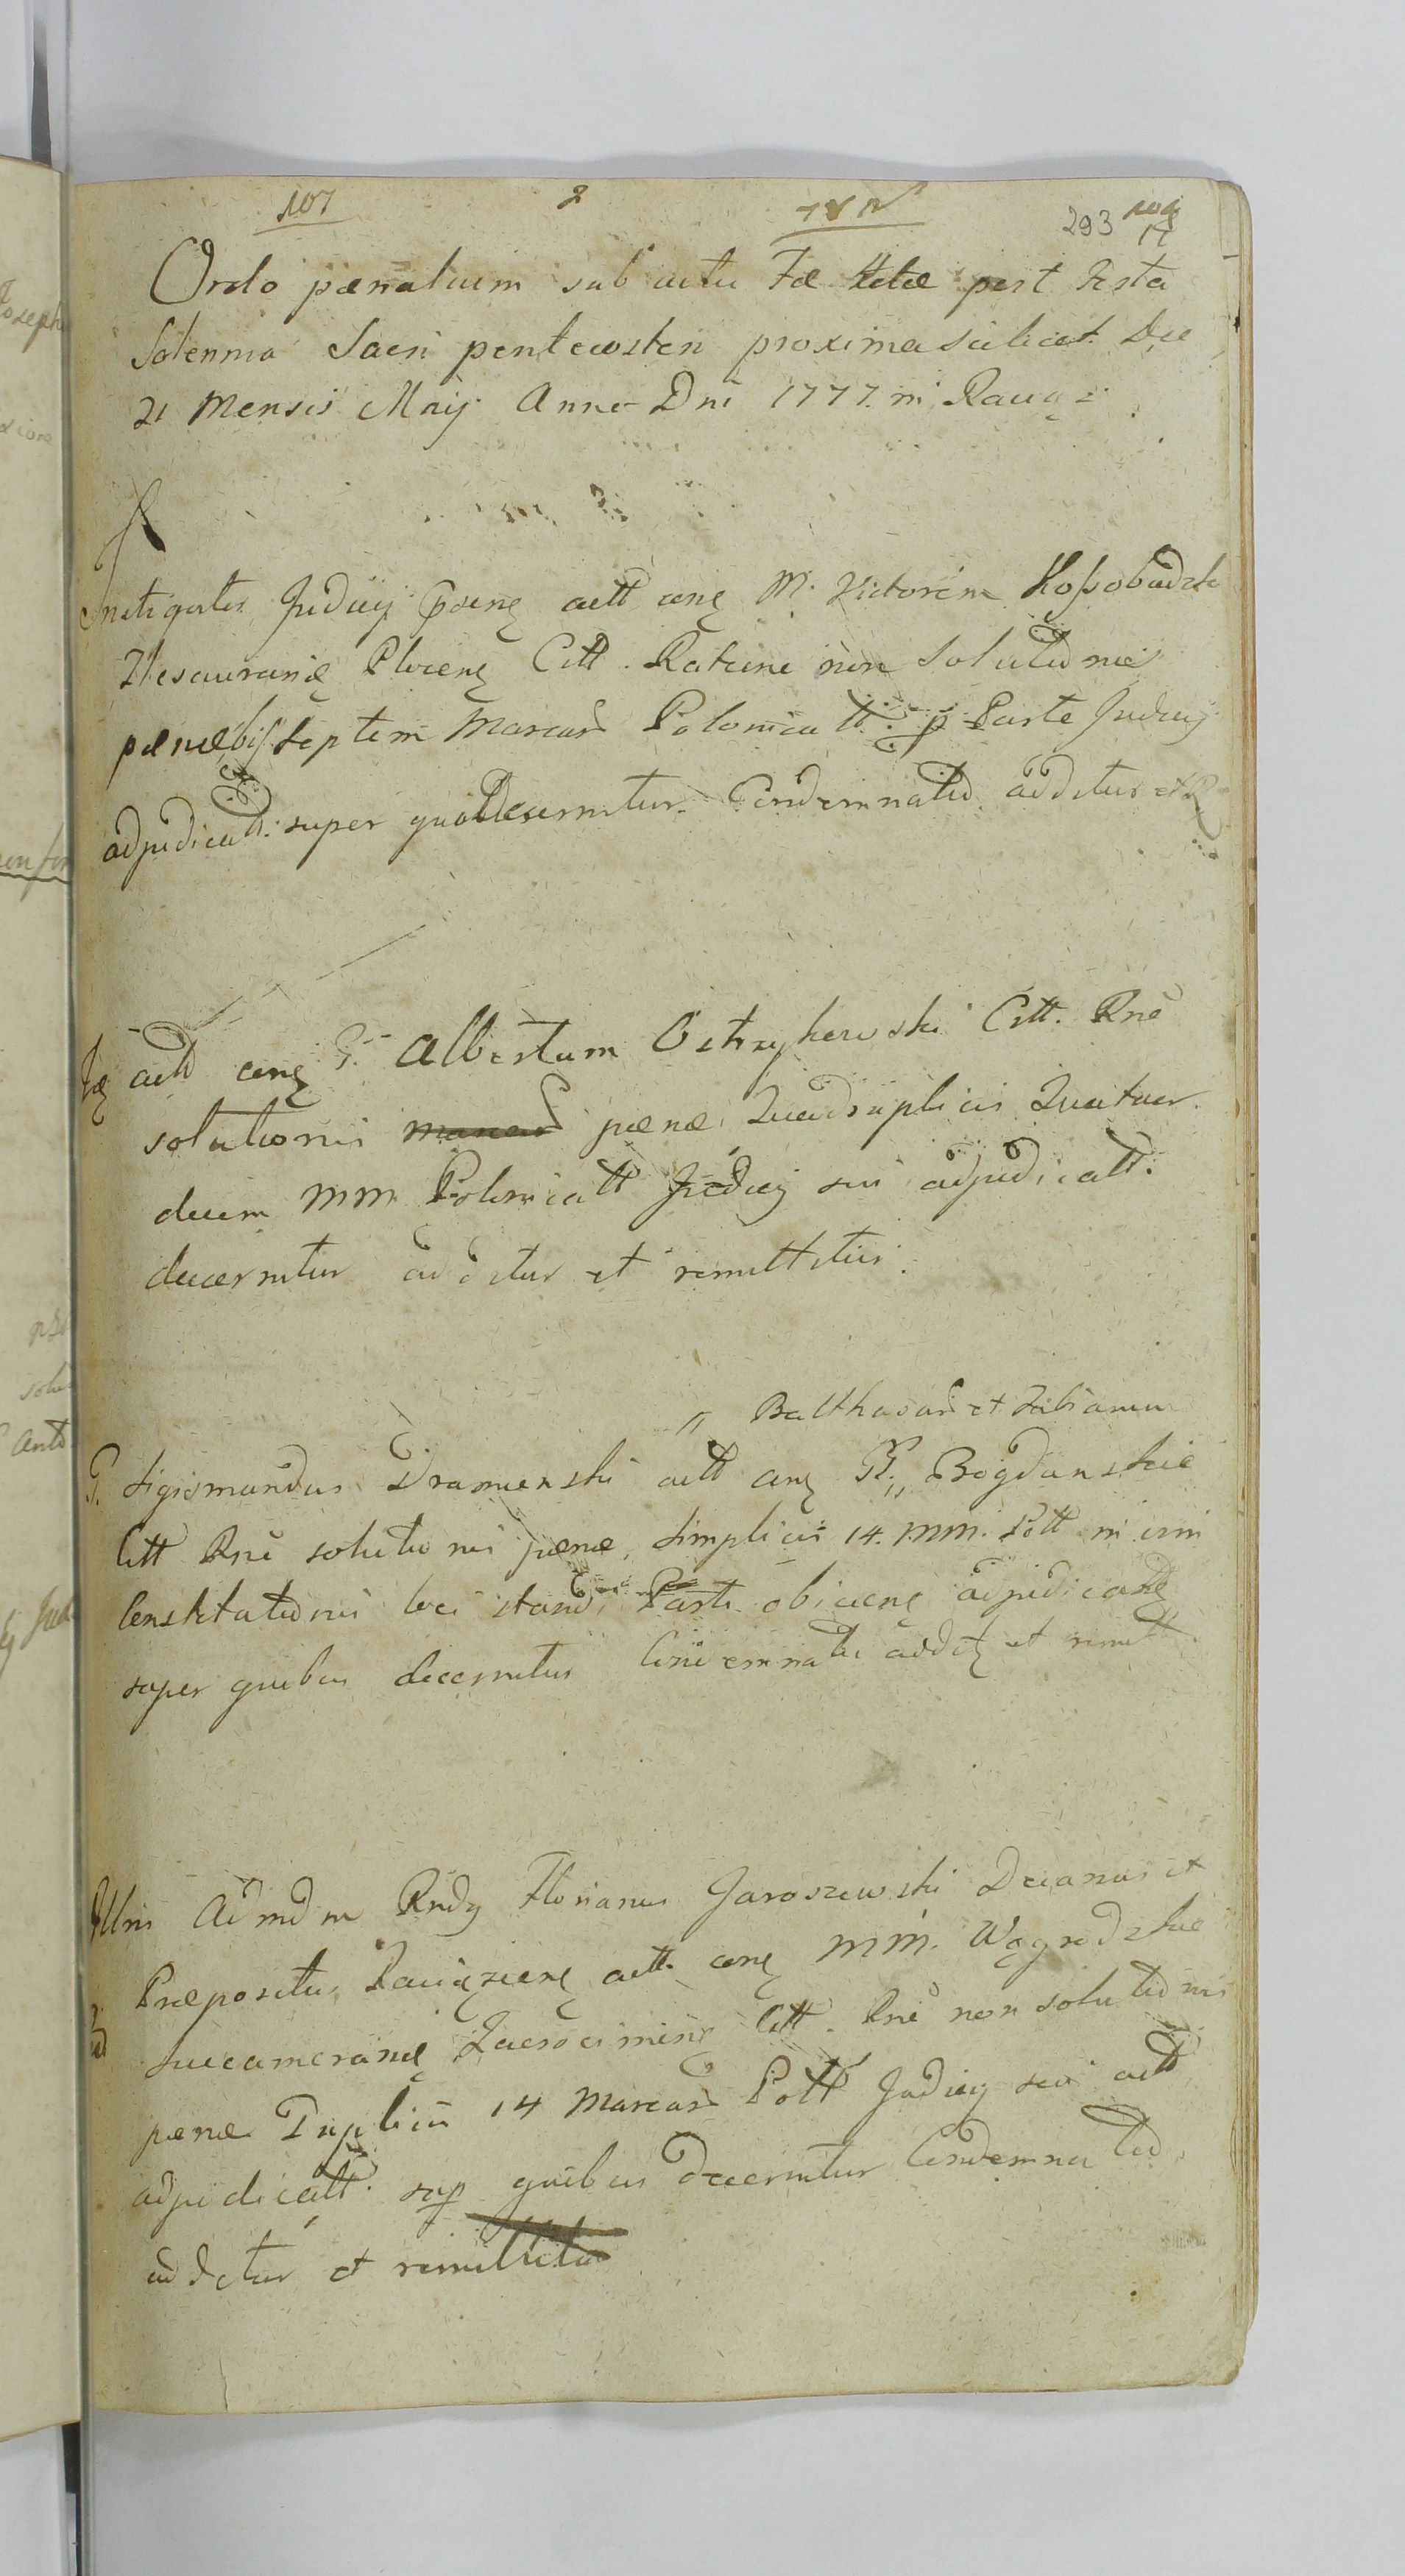 107 2 293 17
Ordo pænalium sub actu Fæ 4tæ post Festa
Solennia Sacri pentecosten proxima scilicet Die
21 Mensis Maij Anno Dni 1777. in Raciąz
Instigator Judicij pñsenę actt cenę M. Victorem Kossobudzki
Thesaurarię Plocenę Citt. Ratione non Solutionis
pænæ bis Septem Marcar Polonicatt: p Parte Judicij
adjudicatt: super quo Decernitur Condemnatio additur et R
Id actt cenę G. Albertum Ostrzykowski Citt. Rnẽ
solutionis pænæ Quadruplicis Quatuor
decim MM Polonicatt Judicij sui adjudicatt.
decernitur additur et remittitur.
" Balthasar et Fabianum
G. Sigismundus Dramienski actt cenę GG. " Bogdanskie
Citt Rnẽ solutionis pænæ Simplicis 14. MM. Pott in vim
loci standi Parti obicienę adjudicatę
super quibus decernitur Condemnatio additę et remitt
Illris Admdm Rndę Florianus Jaroszewski Decanus et
Præpositus Raciązienę actt cenę MM. Węgrodzkie
Succameranę Zacrociminę Citt. Rnẽ non solutionis
pænæ Duplicis 14 Marcar Pott Judicij sui actt
adjudicatt. sup quibus decernitur Condemnatio
additur et remittitur